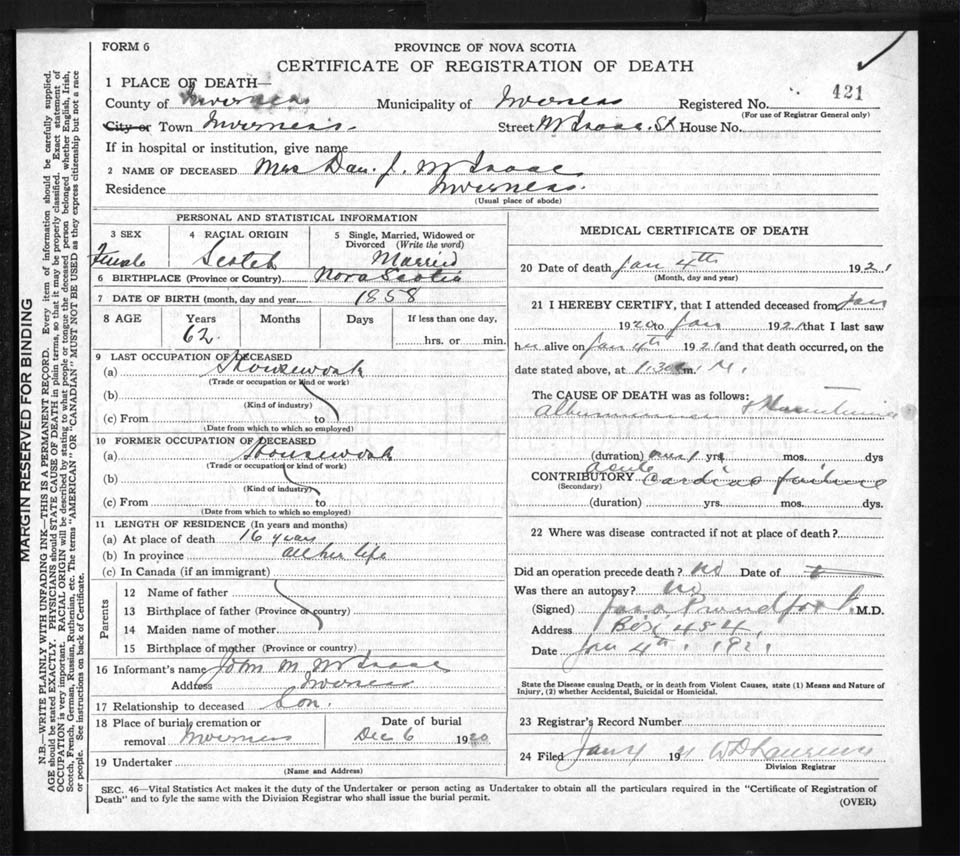 FORM 6
PROVINCE OF NOVA SCOTIA
CERTIFICATE OF REGISTRATION OF DEATH
1 PLACE OF DEATH—
County of Inverness Municipality of Inverness Registered No. 421
(For use of Registrar General only)
City or Town Inverness. Street McIsaac. St House No.
If in hospital or institution, give name
2 NAME OF DECEASED Mrs Dan. J. McIsaac
Residence Inverness.
(Usual place of abode)
PERSONAL AND STATISTICAL INFORMATION
3 SEX
Female
4 RACIAL ORIGIN
Scotch
5 Single, Married, Widowed or
Divorced (Write the word)
Married
6 BIRTHPLACE (Province or Country) Nova Scotia
7 DATE OF BIRTH (month, day and year) 1858
8 AGE Years Months Days If less than one day,
62. hrs. or min.
9 LAST OCCUPATION OF DECEASED
(a) Housework
(Trade or occupation or kind or work)
(b)
(Kind of industry)
(c) From to
(Date from which to which so employed)
10 FORMER OCCUPATION OF DECEASED
(a) Housework
(Trade or occupation or kind of work)
(b)
(Kind of industry)
(c) From to
(Date from which to which so employed)
11 LENGTH OF RESIDENCE (In years and months)
(a) At place of death 16 years
(b) In province all her life
(c) In Canada (if an immigrant)
Parents
12 Name of father
13 Birthplace of father (Province or country)
14 Maiden name of mother
15 Birthplace of mother (Province or country)
16 Informant's name John M. McIsaac
Address Inverness
17 Relationship to deceased Son.
18 Place of burial, cremation or
removal Inverness
Date of burial
Dec 6 1920
19 Undertaker
(Name and Address)
MEDICAL CERTIFICATE OF DEATH
20 Date of death Jan 4th 1921
(Month, day and year)
21 I HEREBY CERTIFY, that I attended deceased from Jan
1920 to Jan 1921 that I last saw
her alive on Jan 4th 1921 and that death occurred, on the
date stated above, at 1.30 m.
The CAUSE OF DEATH was as follows:
(duration) over 1 yrs. mos. dys
CONTRIBUTORY acute cardiac failure
(Secondary)
(duration) yrs. mos. dys.
22 Where was disease contracted if not at place of death?
Did an operation precede death? no Date of
Was there an autopsy? no
(Signed) Proudfoot M.D.
Address Box 484.
Date Jan 4th, 1921
State the Disease causing Death, or in death from Violent Causes, state (1) Means and Nature of
Injury, (2) whether Accidental, Suicidal or Homicidal.
23 Registrar's Record Number
24 Filed Jany 4 1921
Division Registrar
SEC. 46—Vital Statistics Act makes it the duty of the Undertaker or person acting as Undertaker to obtain all the particulars required in the "Certificate of Registration of
Death" and to fyle the same with the Division Registrar who shall issue the burial permit.
(OVER)
MARGIN RESERVED FOR BINDING
N.B.—WRITE PLAINLY WITH UNFADING INK—THIS IS A PERMANENT RECORD. Every item of information should be carefully supplied.
AGE should be stated EXACTLY. PHYSICIANS should STATE CAUSE OF DEATH in plain terms, so that it may be properly classified. Exact statement of
OCCUPATION is very important. RACIAL ORIGIN will be described by stating to what people or tongue the deceased person belonged whether English, Irish,
Scotch, French, German, Russian, Ruthenian, etc. The terms "AMERICAN" OR "CANADIAN" MUST NOT BE USED as they express citizenship but not a race
or people. See instructions on back of Certificate.